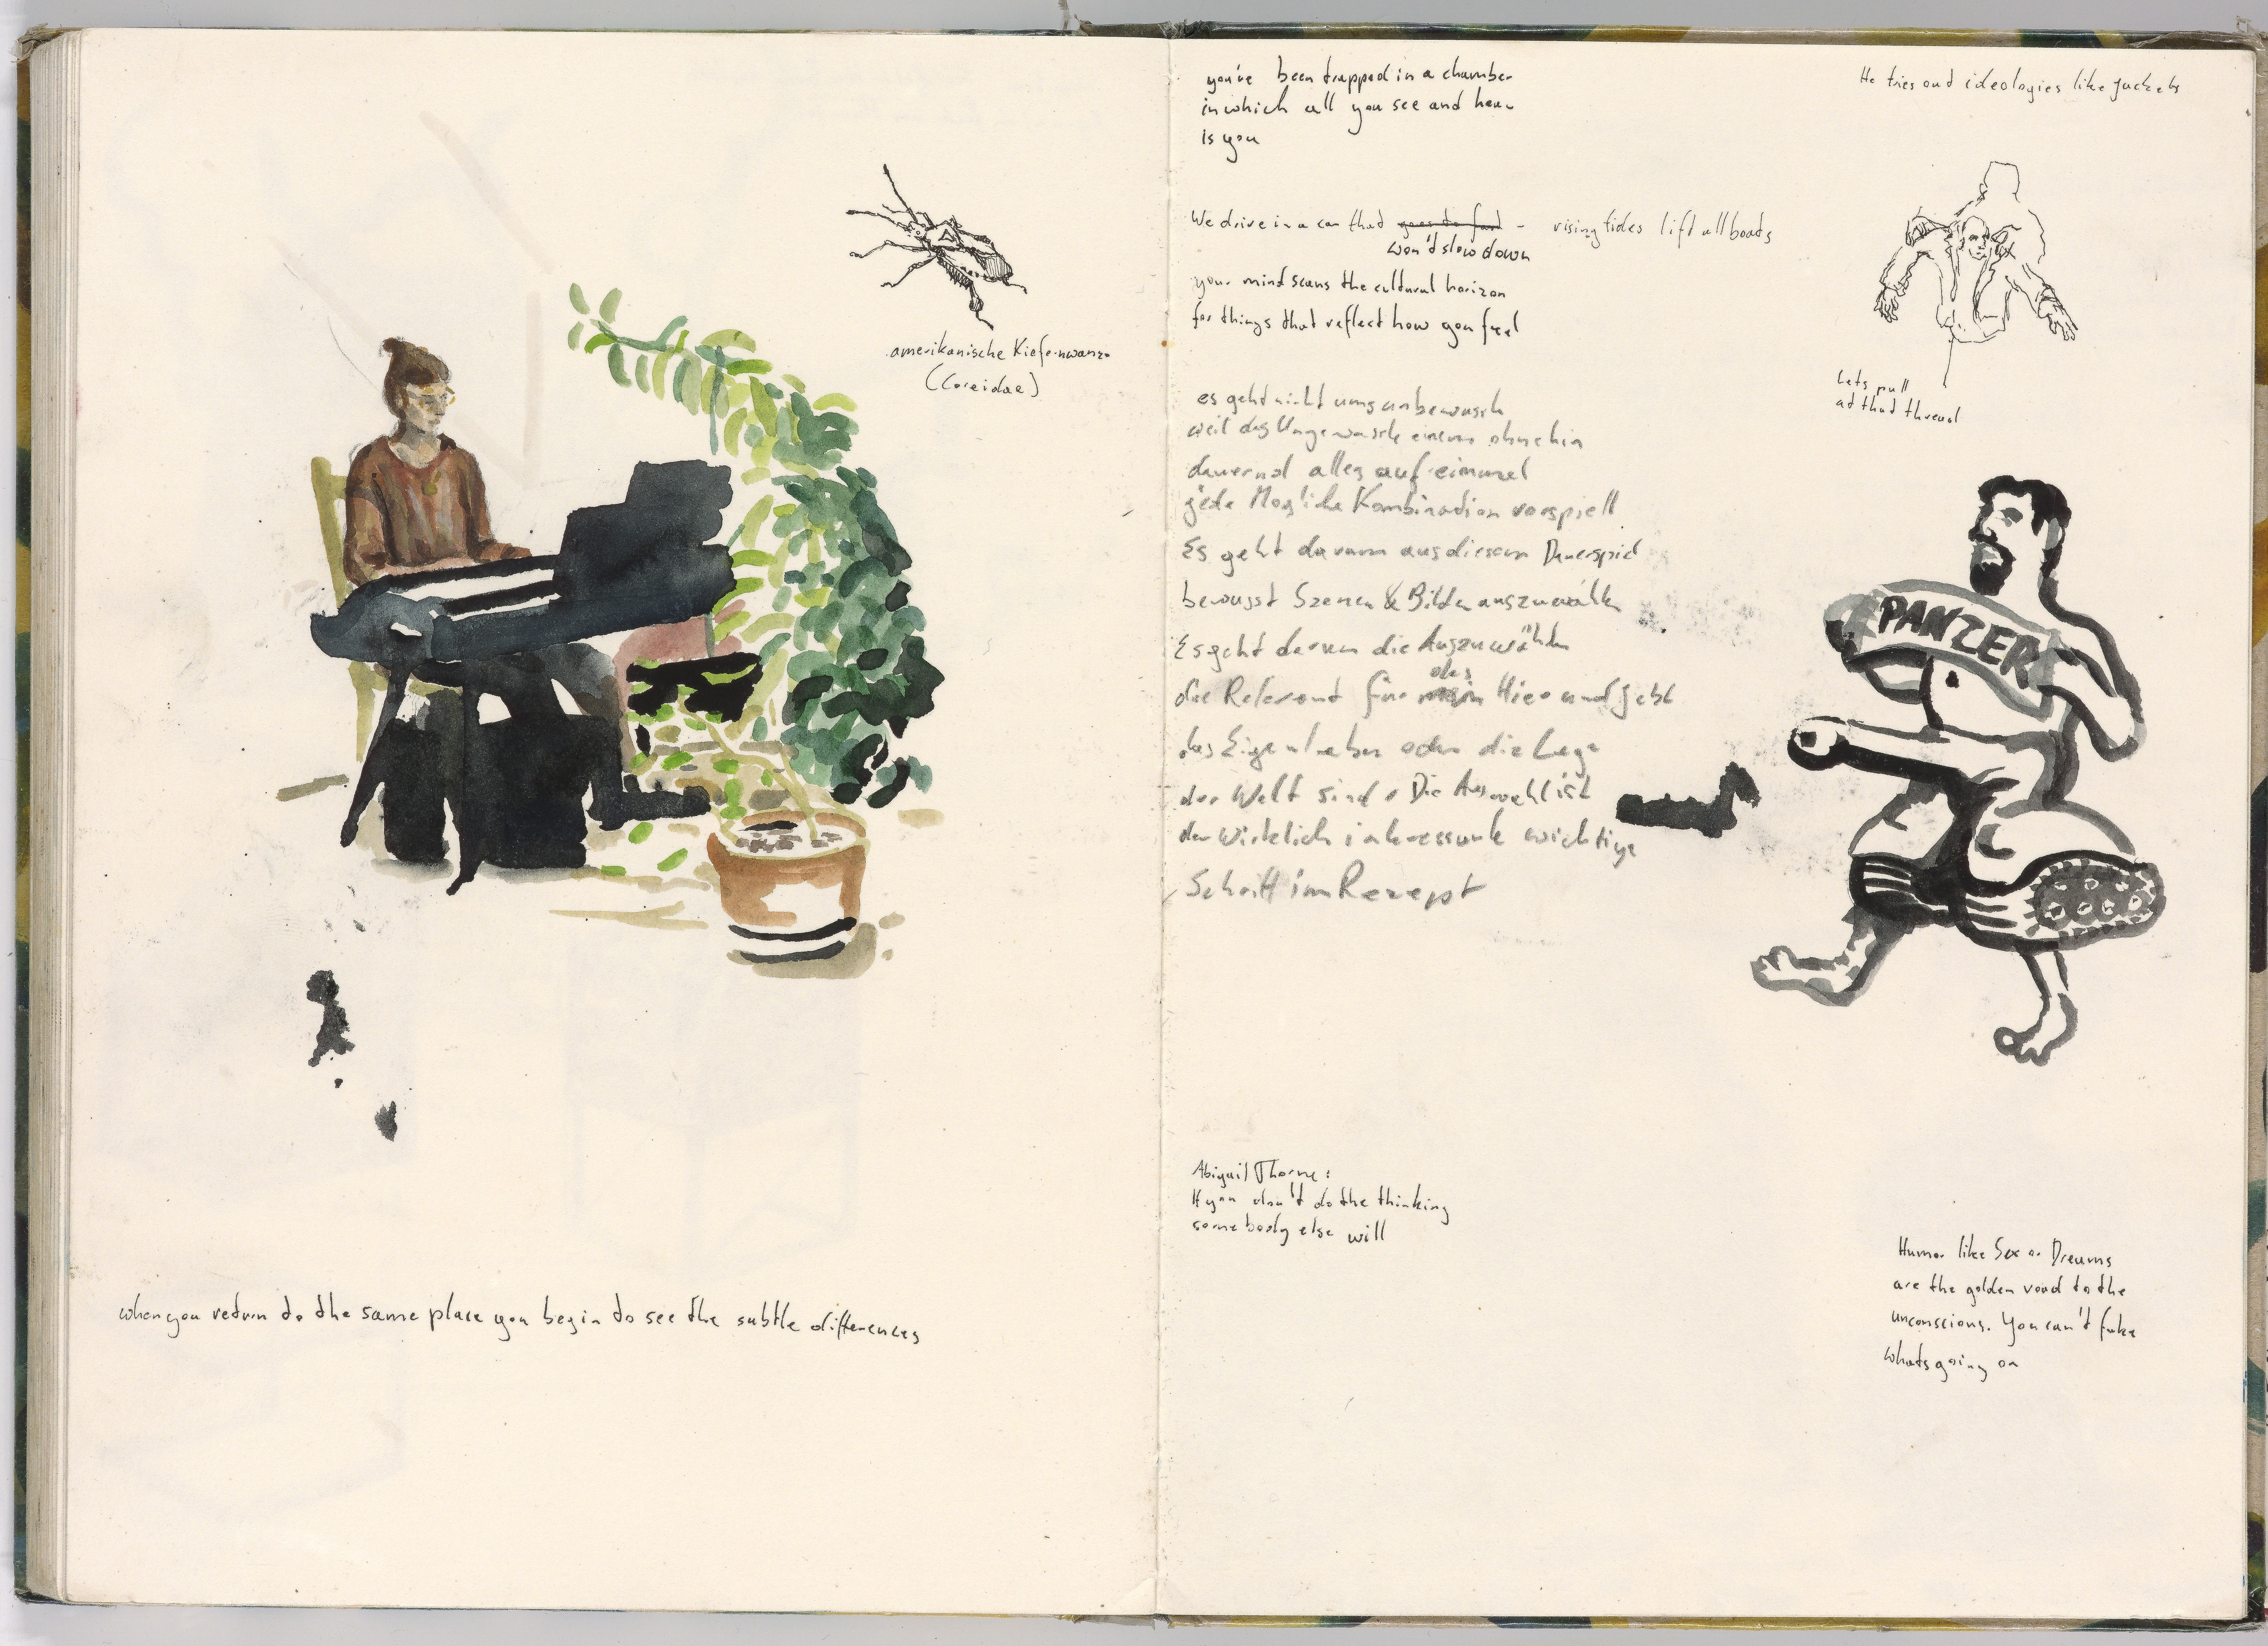 amerikanische Kiefernwanze
(Coreidae)
when you return to the same place you begin to see the subtle differences
you've been trapped in a chamber
in which all you see and hear
is you
We drive in a car that goes to fast - rising tides lift all boats
won't slow down
your mind scans the cultural horizon
for things that reflect how you feel
es geht nicht ums unbewusste
weil das Ungewusste einem ohnehin
dauernd alles auf einmal
jede Mögliche Kombination vorspiell
Es geht darum aus diesem Dauerspiel
bewusst Szenen & Bilder auszuwählen
Es geht darum die Auszuwählen
die Relevant für das Hier und Jetzt
das Eigenleben oder die Lage
der Welt sind. Die Auswahl ist
der wirklich interessante wichtige
Schritt im Rezept
Abigail Thorne:
If you don't do the thinking
somebody else will
He tries out ideologies like jackets
Lets pull
at that thread
PANZER
Humor like Sex or Dreams
are the golden road to the
unconscious. You can't fake
whats going on